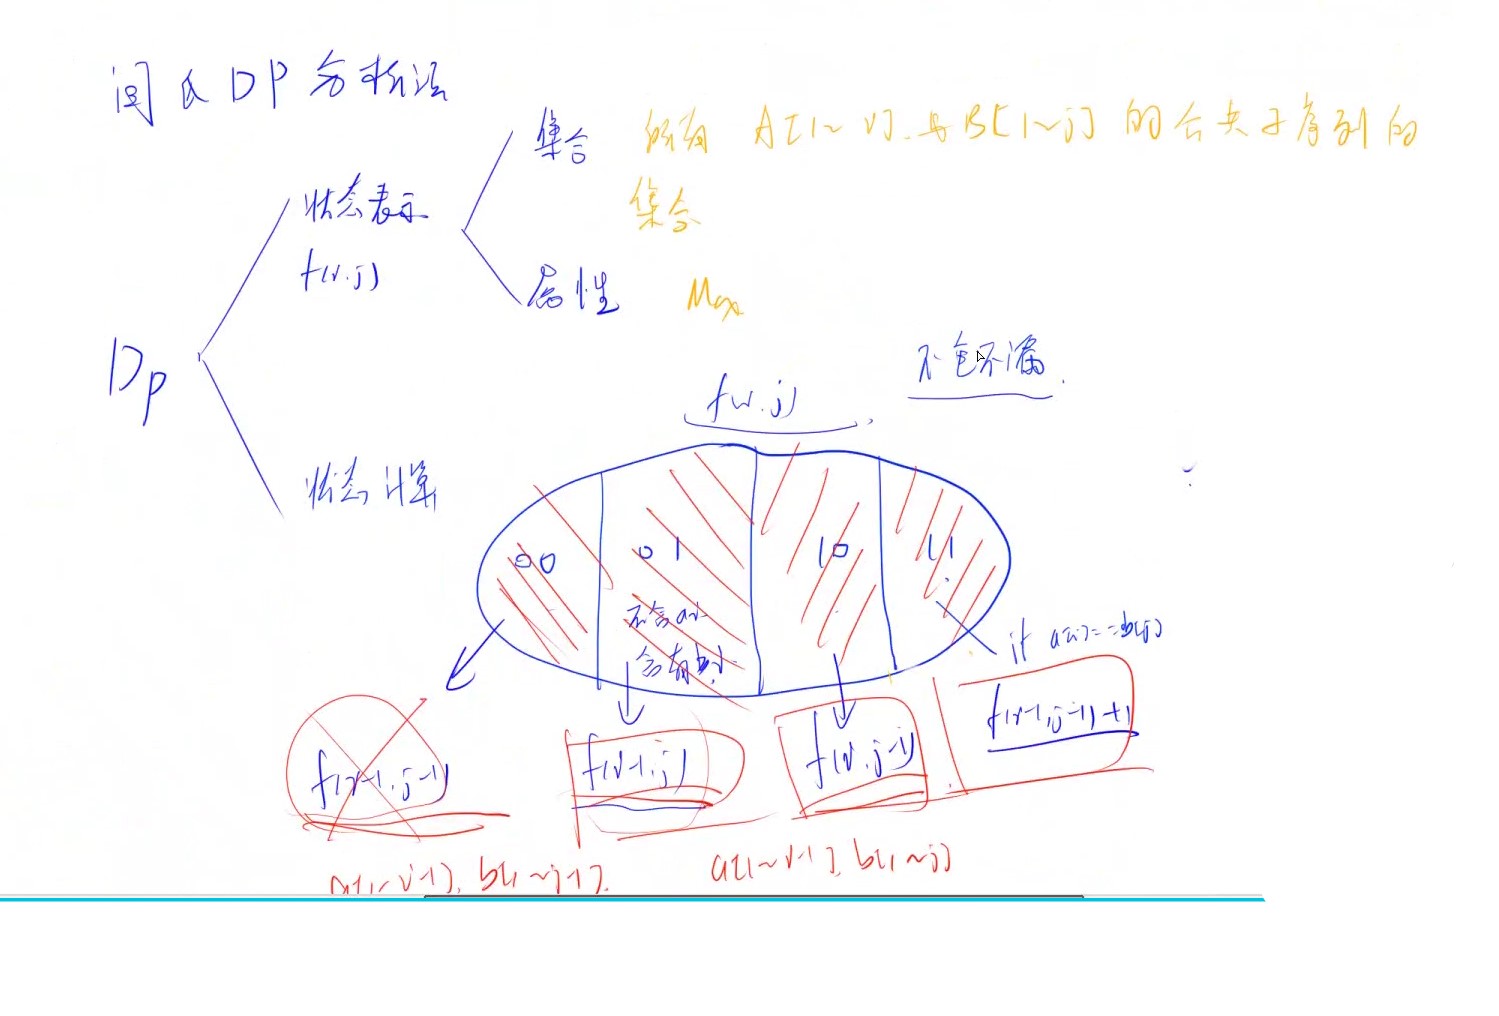 闫氏DP分析法
集合 所有 A[1~i] 与 B[1~j] 的公共子序列的
集合
状态表示
f(i,j)
属性 Max
Dp
不重不漏
f(i,j)
状态计算
00 01 10 11
不含a[i]
含有b[j]
if a[i]==b[j]
f(i-1,j-1) f(i-1,j) f(i,j-1) f(i-1,j-1)+1
a[1~i-1], b[1~j-1]. a[1~i-1], b[1~j]